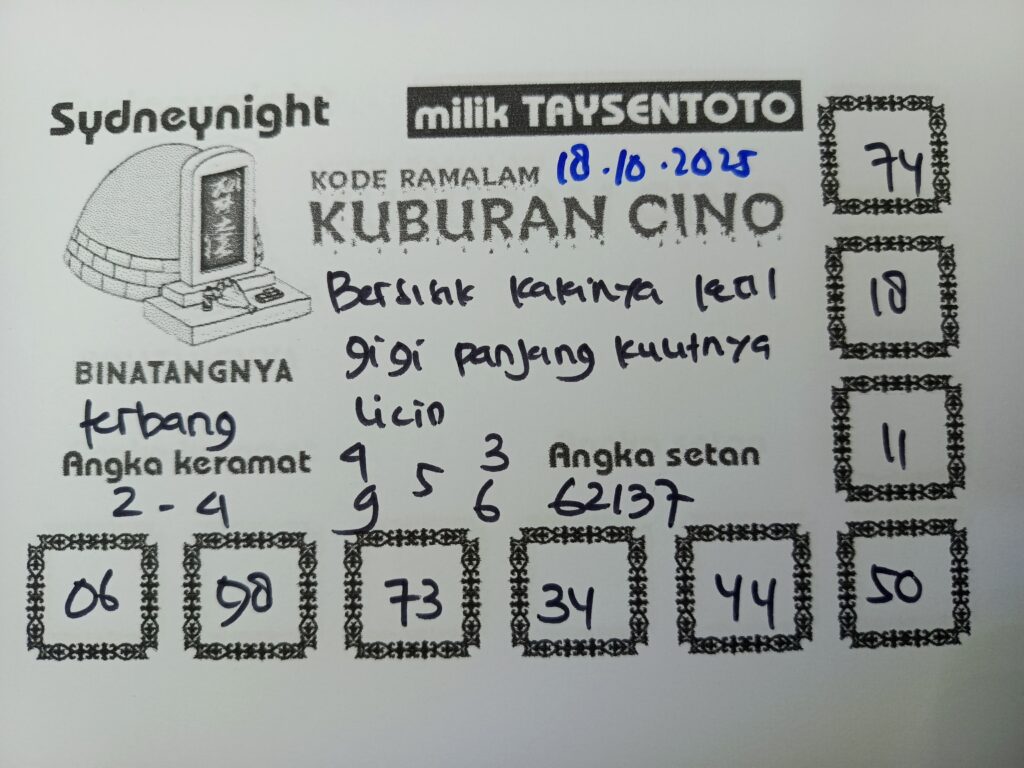 Sydneynight
milik TAYSENTOTO
KODE RAMALAM 18.10.2025
KUBURAN CINO
Bersisik kakinya kecil
gigi panjang kulitnya
licin
BINATANGNYA
terbang
Angka keramat
2 - 4
4 3
5
9 6
Angka setan
62137
74
18
11
06 98 73 34 44 50